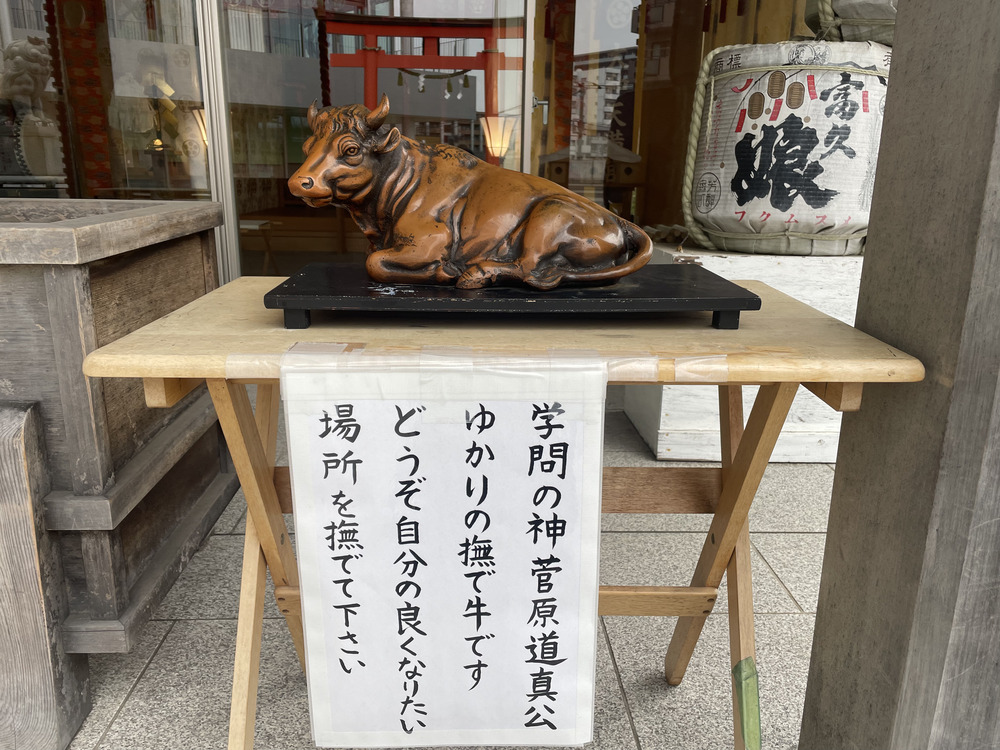 学問の神 菅原道真公
ゆかりの撫で牛です
どうぞ自分の良くなりたい
場所を撫でて下さい
富久
娘
フクムスメ